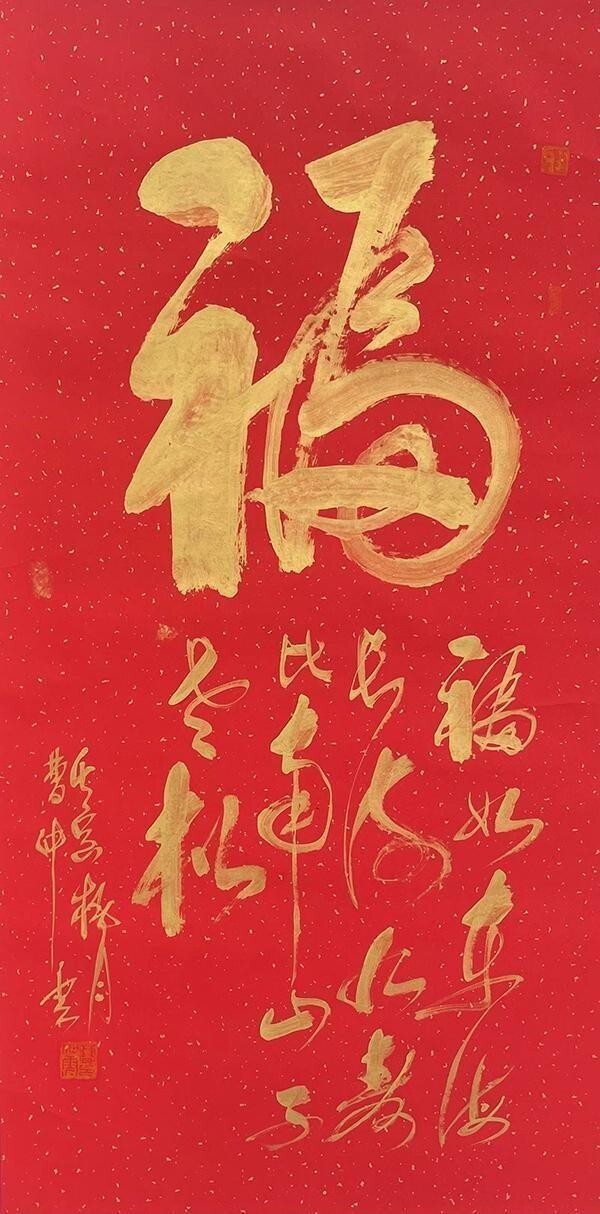 福
福如东海
长流水寿
比南山不
老松
桃月
曹